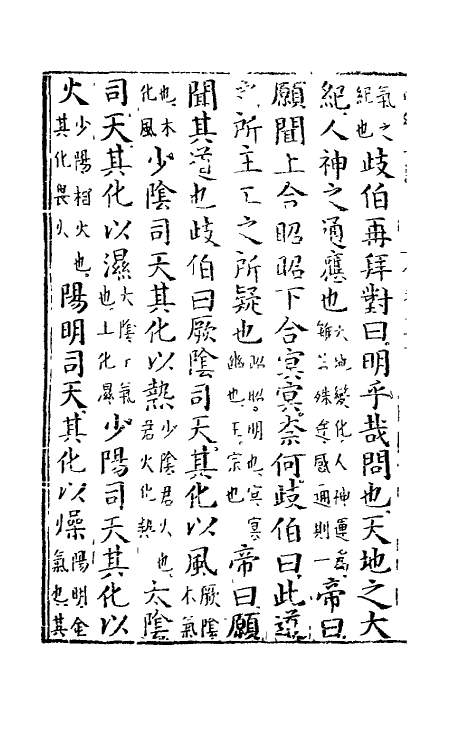 氣之紀也岐伯再拜對曰明乎哉問也天地之大
紀人神之通應也天地變化人神運爲雖殊感通則一帝曰
願聞上合昭昭下合冥冥奈何岐伯曰此道
之所主工之所疑也昭昭明也冥冥幽也工宗也帝曰願
聞其道也岐伯曰厥陰司天其化以風厥陰木氣
也木化風少陰司天其化以熱少陰君火也君火化熱太陰
司天其化以濕太陰土氣也土化濕少陽司天其化以
火少陽相火也其化畏火陽明司天其化以燥陽明金氣也其